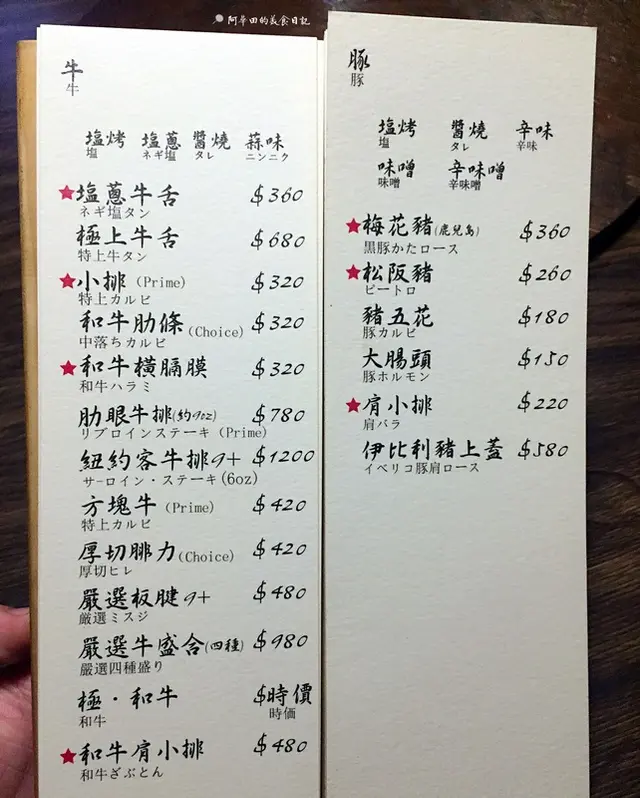 阿華田的美食日記
牛
牛
塩烤 塩蔥 醬燒 蒜味
塩 ネギ塩 タレ ニンニク
塩蔥牛舌 $360
ネギ塩タン
極上牛舌 $680
特上牛タン
小排 (Prime) $320
特上カルビ
和牛肋條 (Choice) $320
中落ちカルビ
和牛橫膈膜 $320
和牛ハラミ
肋眼牛排(約9oz) $780
リブロインステーキ (Prime)
紐約客牛排9+ $1200
サーロイン・ステーキ(6oz)
方塊牛 (Prime) $420
特上カルビ
厚切腓力 (Choice) $420
厚切ヒレ
嚴選板腱9+ $480
厳選ミスジ
嚴選牛盛合(四種) $980
嚴選四種盛り
極・和牛 $時價
和牛 時価
和牛肩小排 $480
和牛ざぶとん
豚
豚
塩烤 醬燒 辛味
塩 タレ 辛味
味噌 辛味噌
味噌 辛味噌
梅花豬(鹿兒島) $360
黒豚かたロース
松阪豬 $260
ピートロ
豬五花 $180
豚カルビ
大腸頭 $150
豚ホルモン
肩小排 $220
肩バラ
伊比利豬上蓋 $580
イベリコ豚肩ロース